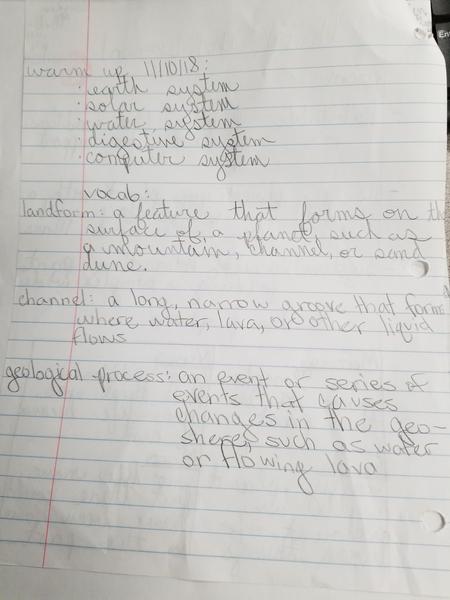 warm up 11/10/18:
· earth system
· solar system
· water system
· digestive system
· computer system
vocab:
landform: a feature that forms on the
surface of a planet, such as
a mountain, channel, or sand
dune.
channel: a long, narrow groove that forms
where water, lava, or other liquid
flows
geological process: an event or series of
events that causes
changes in the geo-
shere, such as water
or flowing lava